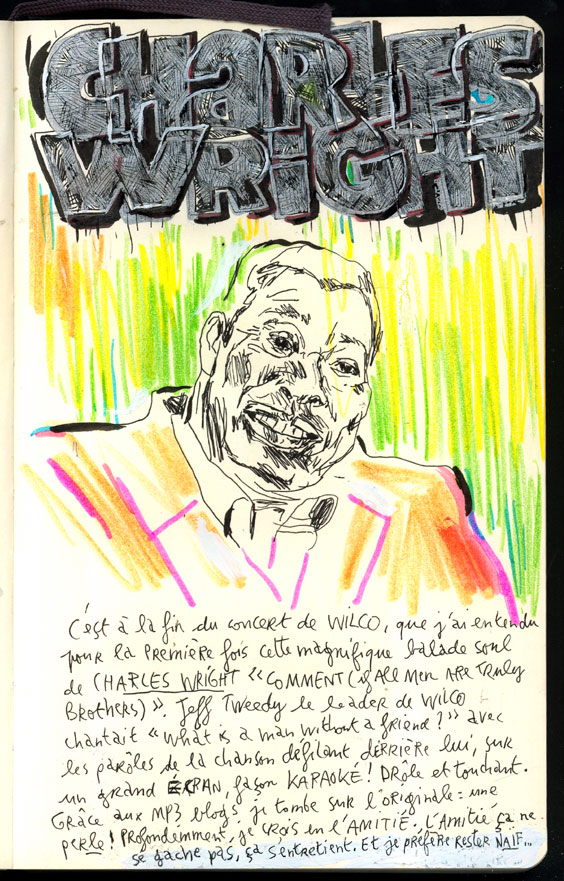 CHaRLES
WRiGHT
C'est à la fin du concert de WILCO, que j'ai entendu
pour la PREMIÈRE fois cette magnifique balade soul
de CHARLES WRIGHT "COMMENT (if All Men Are Truly
Brothers)". Jeff Tweedy le leader de WILCO
chantait "What is a man without a friend?" avec
les parôles de la chanson défilant DERRIÈRE lui, sur
un grand ÉCRAN, façon KARAOKÉ! DRôle et touchant.
Grâce aux MP3 blogs je tombe sur l'originale: une
perle! Profondemment, je crois en l'AMITIÉ. L'Amitié, ça ne
se gache pas, ça s'entretient. Et je préfère rester NAÏF...